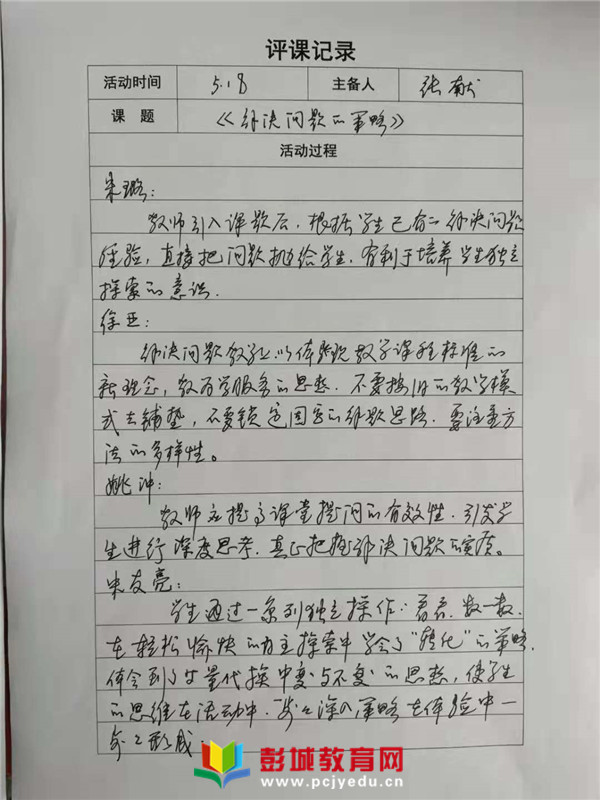 评课记录
活动时间 5.18 主备人 张献
课 题 《解决问题的策略》
活动过程
朱璐：
教师引入课题后，根据学生已有的解决问题
经验，直接把问题抛给学生，有利于培养学生独立
探索的意识.
徐亚：
解决问题教学 体现数学课程标准的
新理念，教为学服务的思想. 不要按旧的教学模
式去铺垫，不要锁定固有的解题思路. 要注重方
法的多样性。
姚冲：
教师应提高课堂提问的有效性. 引发学
生进行深度思考. 真正把握解决问题的实质。
朱友亮：
学生通过一系列独立操作：看看. 数一数.
在轻松愉快的自主探索中学会了“转化”的策略.
体会到了等量代换中变与不变的思想，使学生
的思维在活动中. 步步深入策略在体验中一
步步形成.
彭城教育网
www.pcjyedu.cn